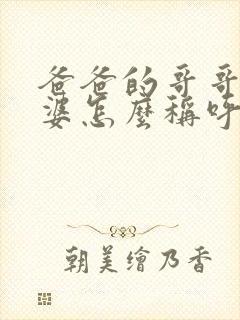 爸爸的哥哥
婆怎麼稱呼
朝美繪乃香